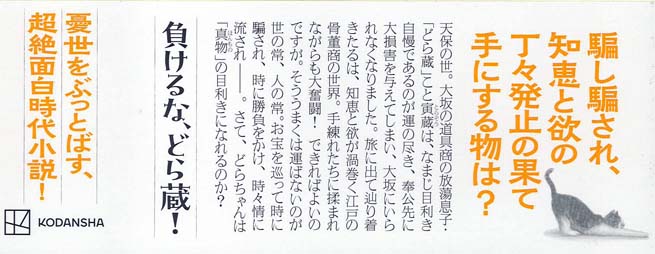 騙し騙され、
知恵と欲の
丁々発止の果て
手にする物は?
天保の世。大坂の道具商の放蕩息子・
「どら蔵」こと寅蔵は、なまじ目利き
自慢であるのが運の尽き、奉公先に
大損害を与えてしまい、大坂にいら
れなくなりました。旅に出て辿り着
きたるは、知恵と欲が渦巻く江戸の
骨董商の世界。手練れたちに揉まれ
ながらも大奮闘! できればよいの
ですが。そううまくは運ばないのが
世の常、人の常。お宝を巡って時に
騙され、時に勝負をかけ、時々情に
流され——。さて、どらちゃんは
「真物」の目利きになれるのか?
負けるな、どら蔵!
憂世をぶっとばす、
超絶面白時代小説!
KODANSHA